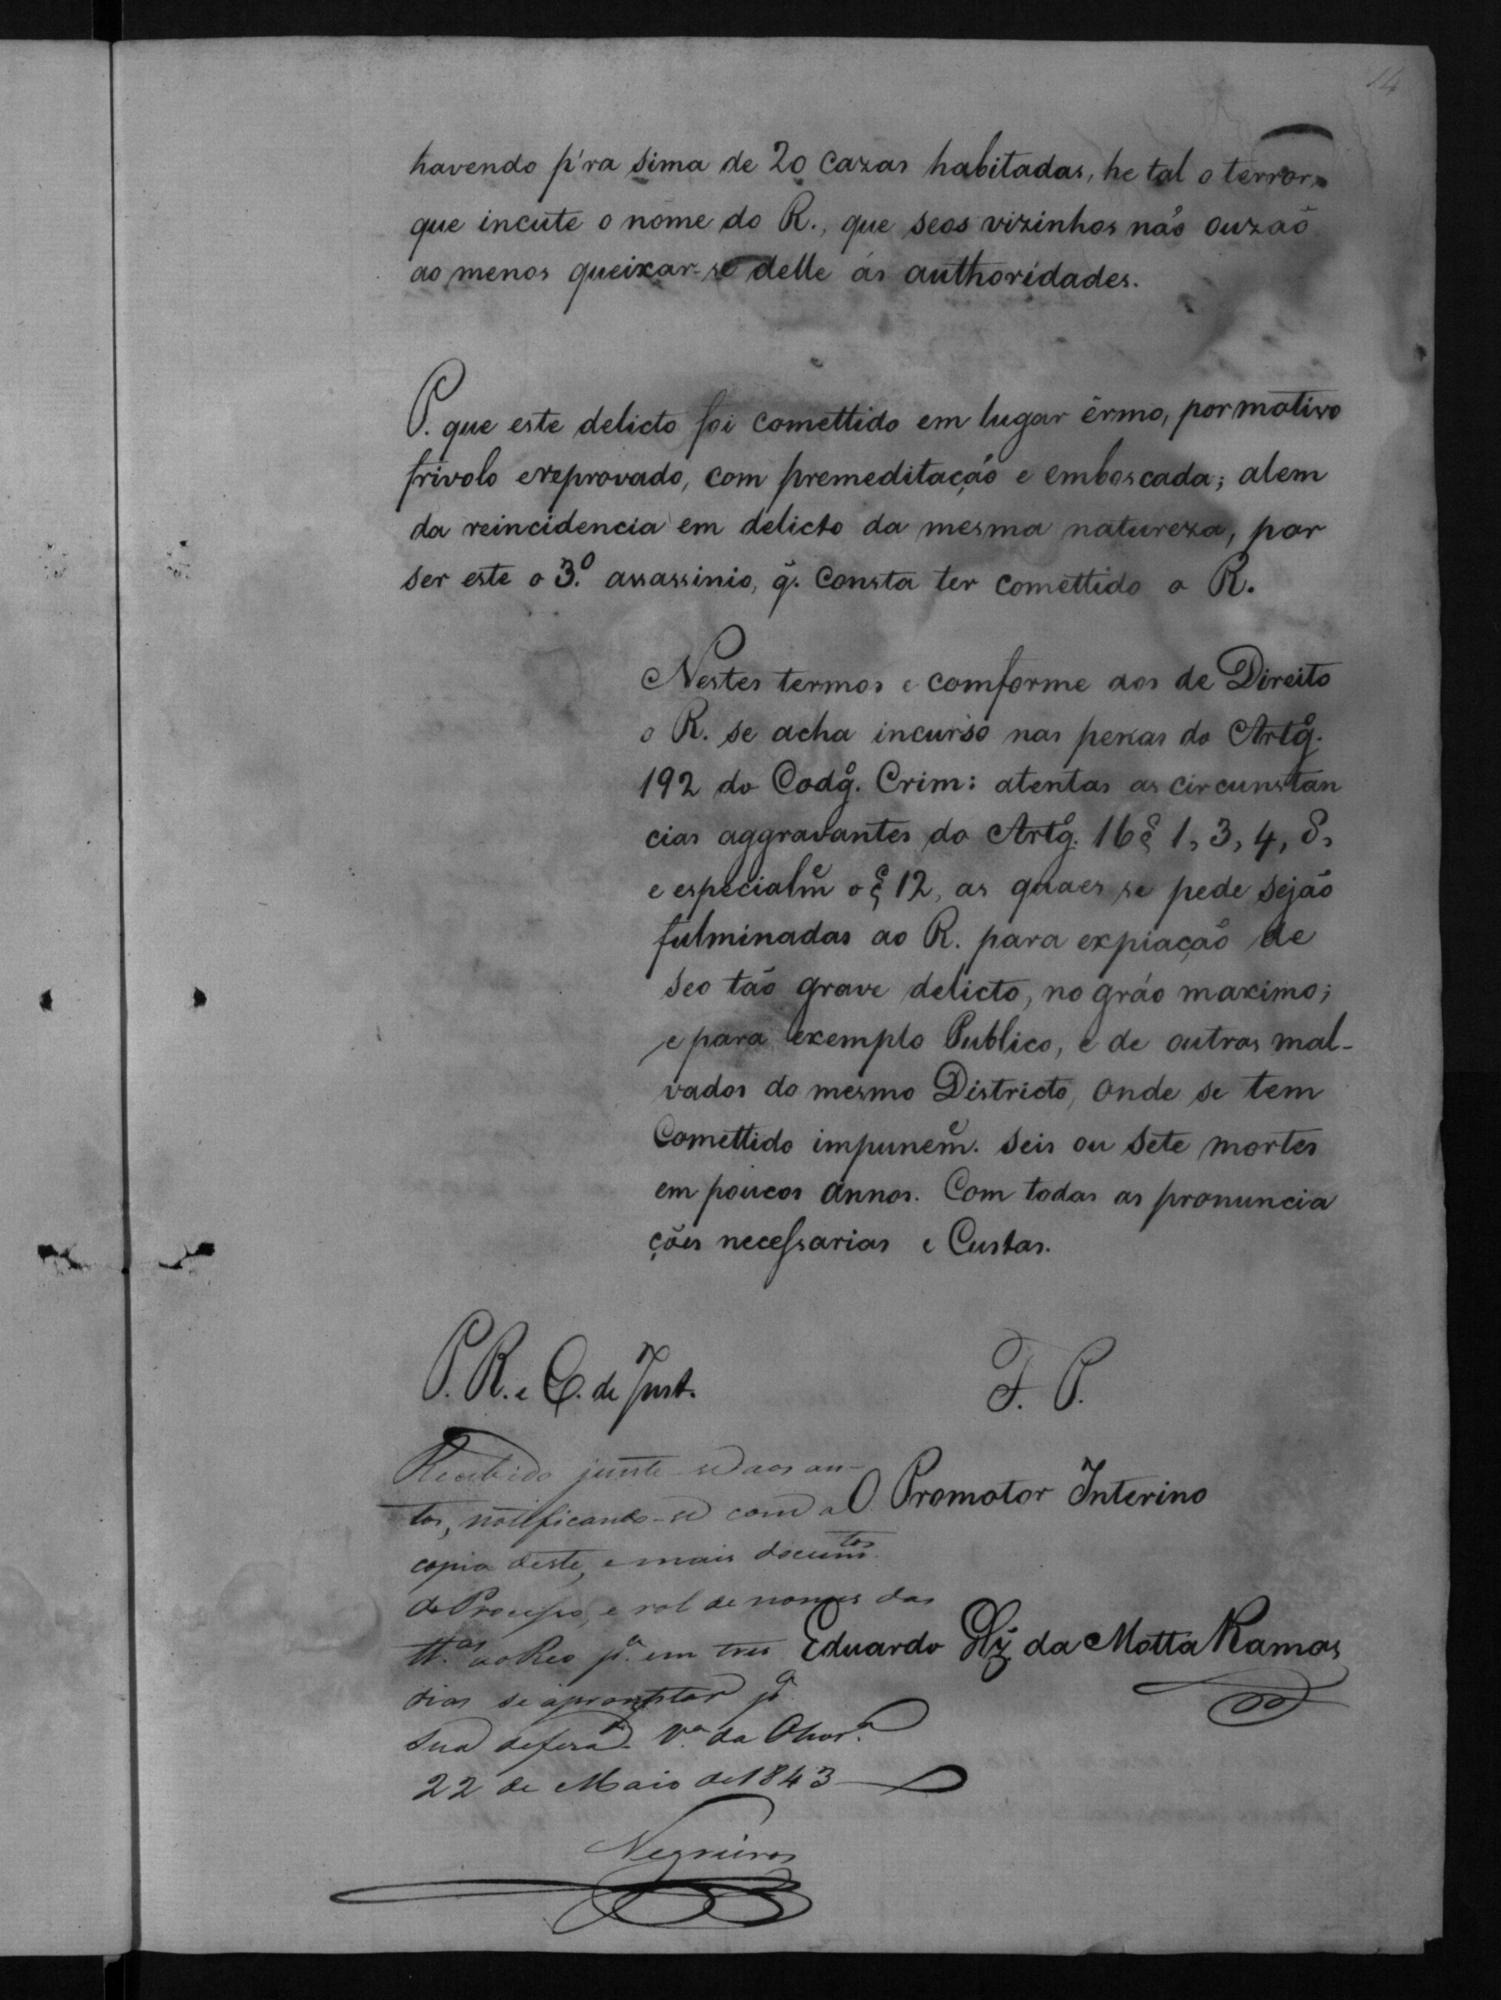 14
havendo p'ra sima de 20 cazas habitadas, he tal o terror,
que incute o nome do R., que seos vizinhos não ouzaõ
ao menos queixar-se delle ás authoridades.
P. que este delicto foi comettido em lugar êrmo, por motivo
frivolo e reprovado, com premeditaçaõ e emboscada; alem
da reincidencia em delicto da mesma natureza, por
ser este o 3.º assassinio, q̃. consta ter comettido o R.
Nestes termos e comforme aos de Direito
o R. se acha incurso nas penas do Artgº.
192 do Codgº. Crim: atentas as circunstan
cias aggravantes do Artgº. 16 § 1, 3, 4, 8,
e especialmᵉ o § 12, as quaes se pede sejaõ
fulminadas ao R. para expiaçaõ de
seo taõ grave delicto, no gráo maximo;
e para exemplo Publico, e de outros mal-
vados do mesmo Districto, onde se tem
Comettido impunemᵉ. seis ou sete mortes
em poucos annos. Com todas as pronuncia
ções necessarias e Custas.
P. R. e C. de Just.
F. P.
O Promotor Interino
Eduardo da Motta Ramos
Recebido junte-se aos au-
tos, notificando-se com a
copia deste, e mais documᵗᵒˢ.
do Processo, e rol de nomes das
Tt.ᵃˢ ao Reo pª. em tres
dias se aprontar pª
sua defesa. Vª. da
22 de Maio de 1843
Negreiros